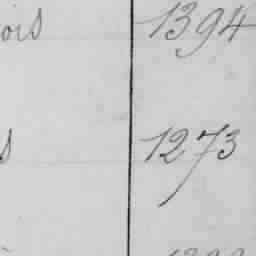 ois 1394
s 1273